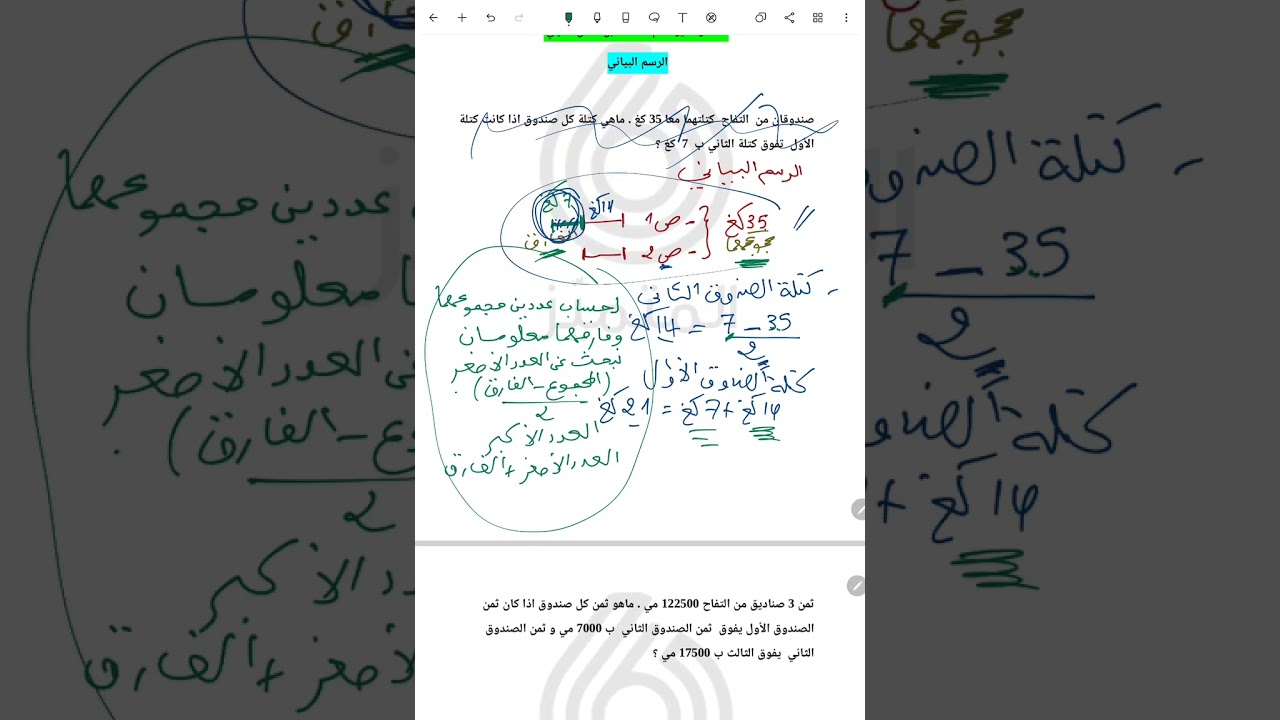 الرسم البياني
صندوقان من التفاح كتلتهما معا 35 كغ . ماهي كتلة كل صندوق اذا كانت كتلة
الأول تفوق كتلة الثاني ب 7 كغ ؟
الرسم البياني
7كغ
14كغ
- ص1
35كغ
- ص2
مجموعهما
الفارق
- كتلة الصندوق الثاني
35 - 7 = 14كغ
2
كتلة الصندوق الأول
14كغ + 7كغ = 21كغ
لحساب عددين مجموعهما
وفارقهما معلومان
نبحث عن العدد الأصغر
(المجموع - الفارق)
2
العدد الأكبر
العدد الأصغر + الفارق
ثمن 3 صناديق من التفاح 122500 مي . ماهو ثمن كل صندوق اذا كان ثمن
الصندوق الأول يفوق ثمن الصندوق الثاني ب 7000 مي و ثمن الصندوق
الثاني يفوق الثالث ب 17500 مي ؟